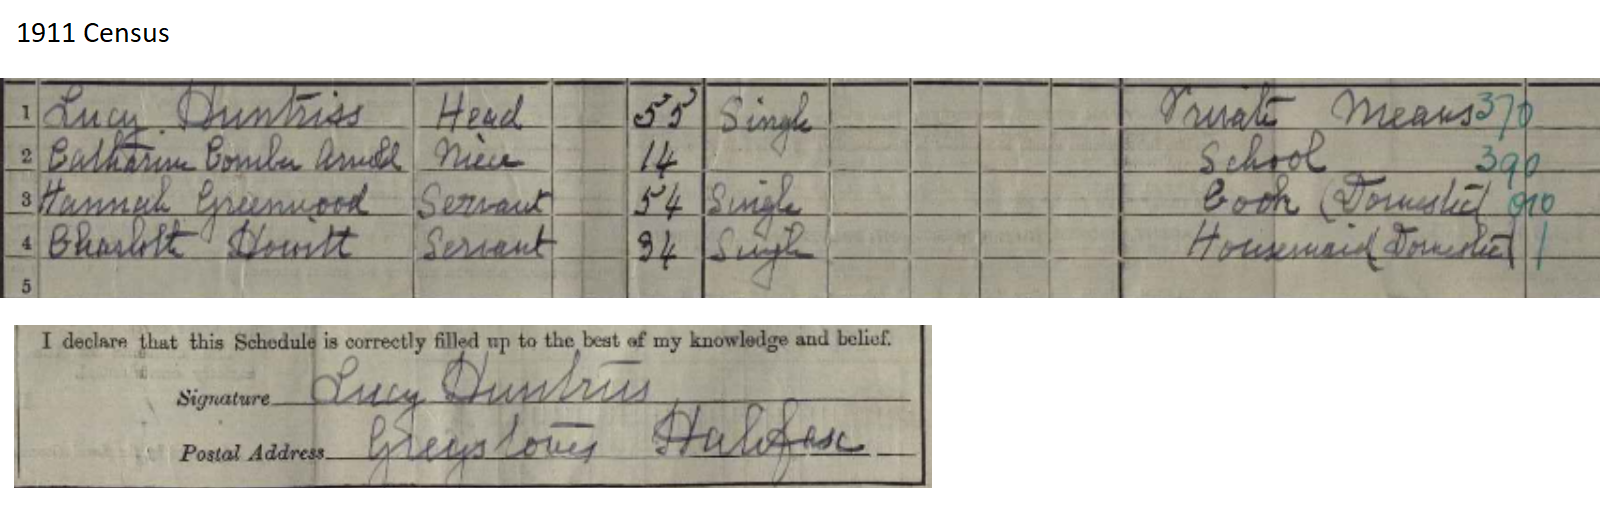 1911 Census
1 Lucy Huntriss Head 55 Single Private Means 370
2 Catharine Comber Arnold Niece 14 School 390
3 Hannah Greenwood Servant 54 Single Cook (Domestic) 010
4 Charlotte Howitt Servant 34 Single Housemaid (Domestic)
5
I declare that this Schedule is correctly filled up to the best of my knowledge and belief.
Signature Lucy Huntriss
Postal Address Greystones Halifax